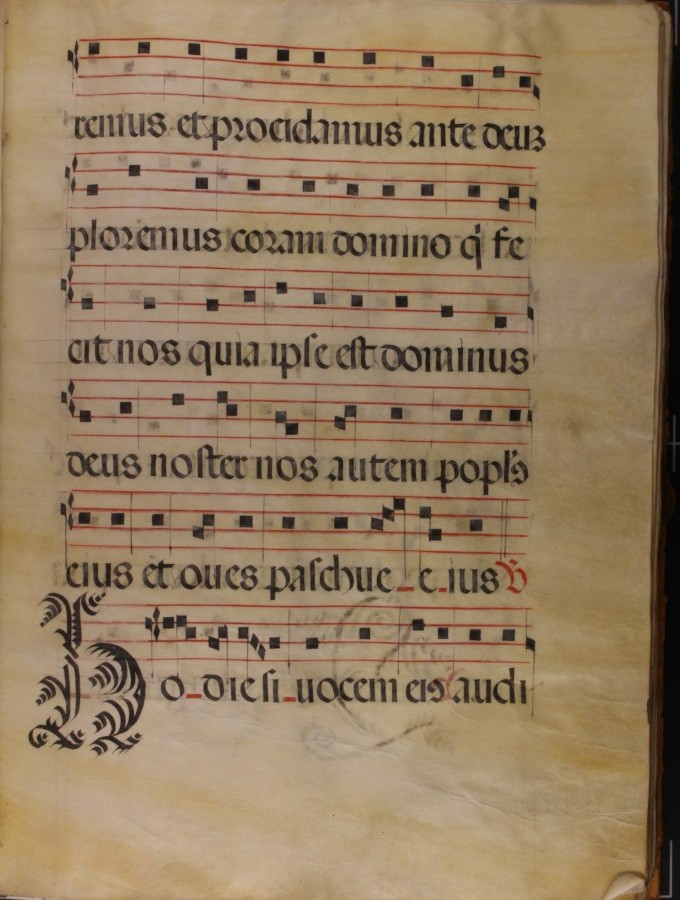 remus et procidamus ante deuz
ploremus coram domino q̇ fe
cit nos quia ipse est dominus
deus noster nos autem popl's
eius et oues paschue e ius ℣
Ho die si uocem eiꝰ audi